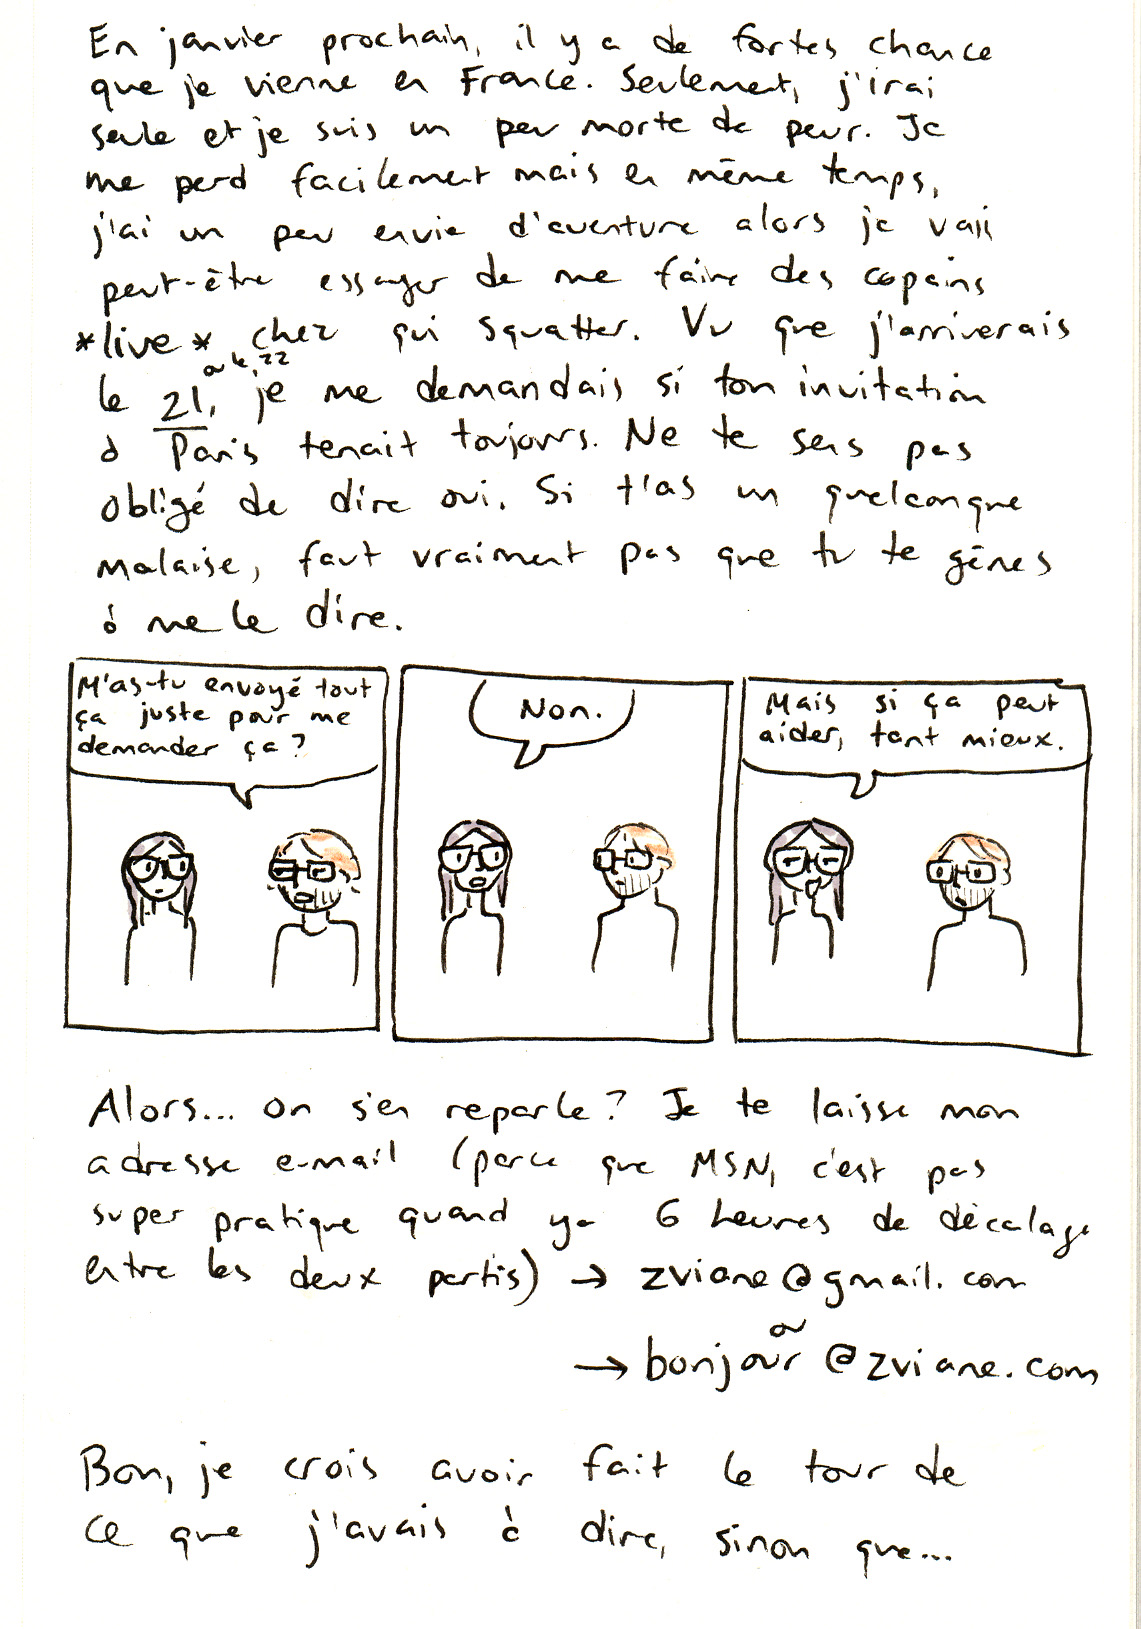 En janvier prochain, il y a de fortes chance
que je vienne en France. Seulement, j'irai
seule et je suis un peu morte de peur. Je
me perd facilement mais en même temps,
j'ai un peu envie d'aventure alors je vais
peut-être essayer de me faire des copains
*live* chez qui squatter. Vu que j'arriverais
ou le 22
le 21, je me demandais si ton invitation
à Paris tenait toujours. Ne te sens pas
obligé de dire oui. Si t'as un quelconque
malaise, faut vraiment pas que tu te gênes
à me le dire.
M'as-tu envoyé tout
ça juste pour me
demander ça?
Non.
Mais si ça peut
aider, tant mieux.
Alors... on s'en reparle? Je te laisse mon
adresse e-mail (parce que MSN, c'est pas
super pratique quand ya 6 heures de décalage
entre les deux partis) → zviane@gmail.com
ou
→ bonjour@zviane.com
Bon, je crois avoir fait le tour de
ce que j'avais à dire, sinon que...